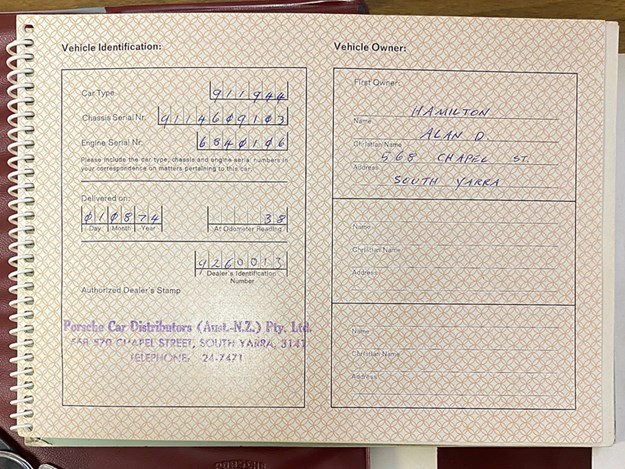 Vehicle Identification:
Car Type 911944
Chassis Serial Nr. 9114609103
Engine Serial Nr. 6840106
Please include the car type, chassis and engine serial numbers in
your correspondence on matters pertaining to this car.
Delivered on:
010874 38
Day Month Year At Odometer Reading
9260013
Dealer's Identification
Number
Authorized Dealer's Stamp
Porsche Car Distributors (Aust.-N.Z.) Pty. Ltd.
568-570 CHAPEL STREET, SOUTH YARRA, 3141
TELEPHONE: 24-7471
Vehicle Owner:
First Owner:
HAMILTON
Name
ALAN D
Christian Name
568 CHAPEL ST.
Address
SOUTH YARRA
Name
Christian Name
Address
Name
Christian Name
Address